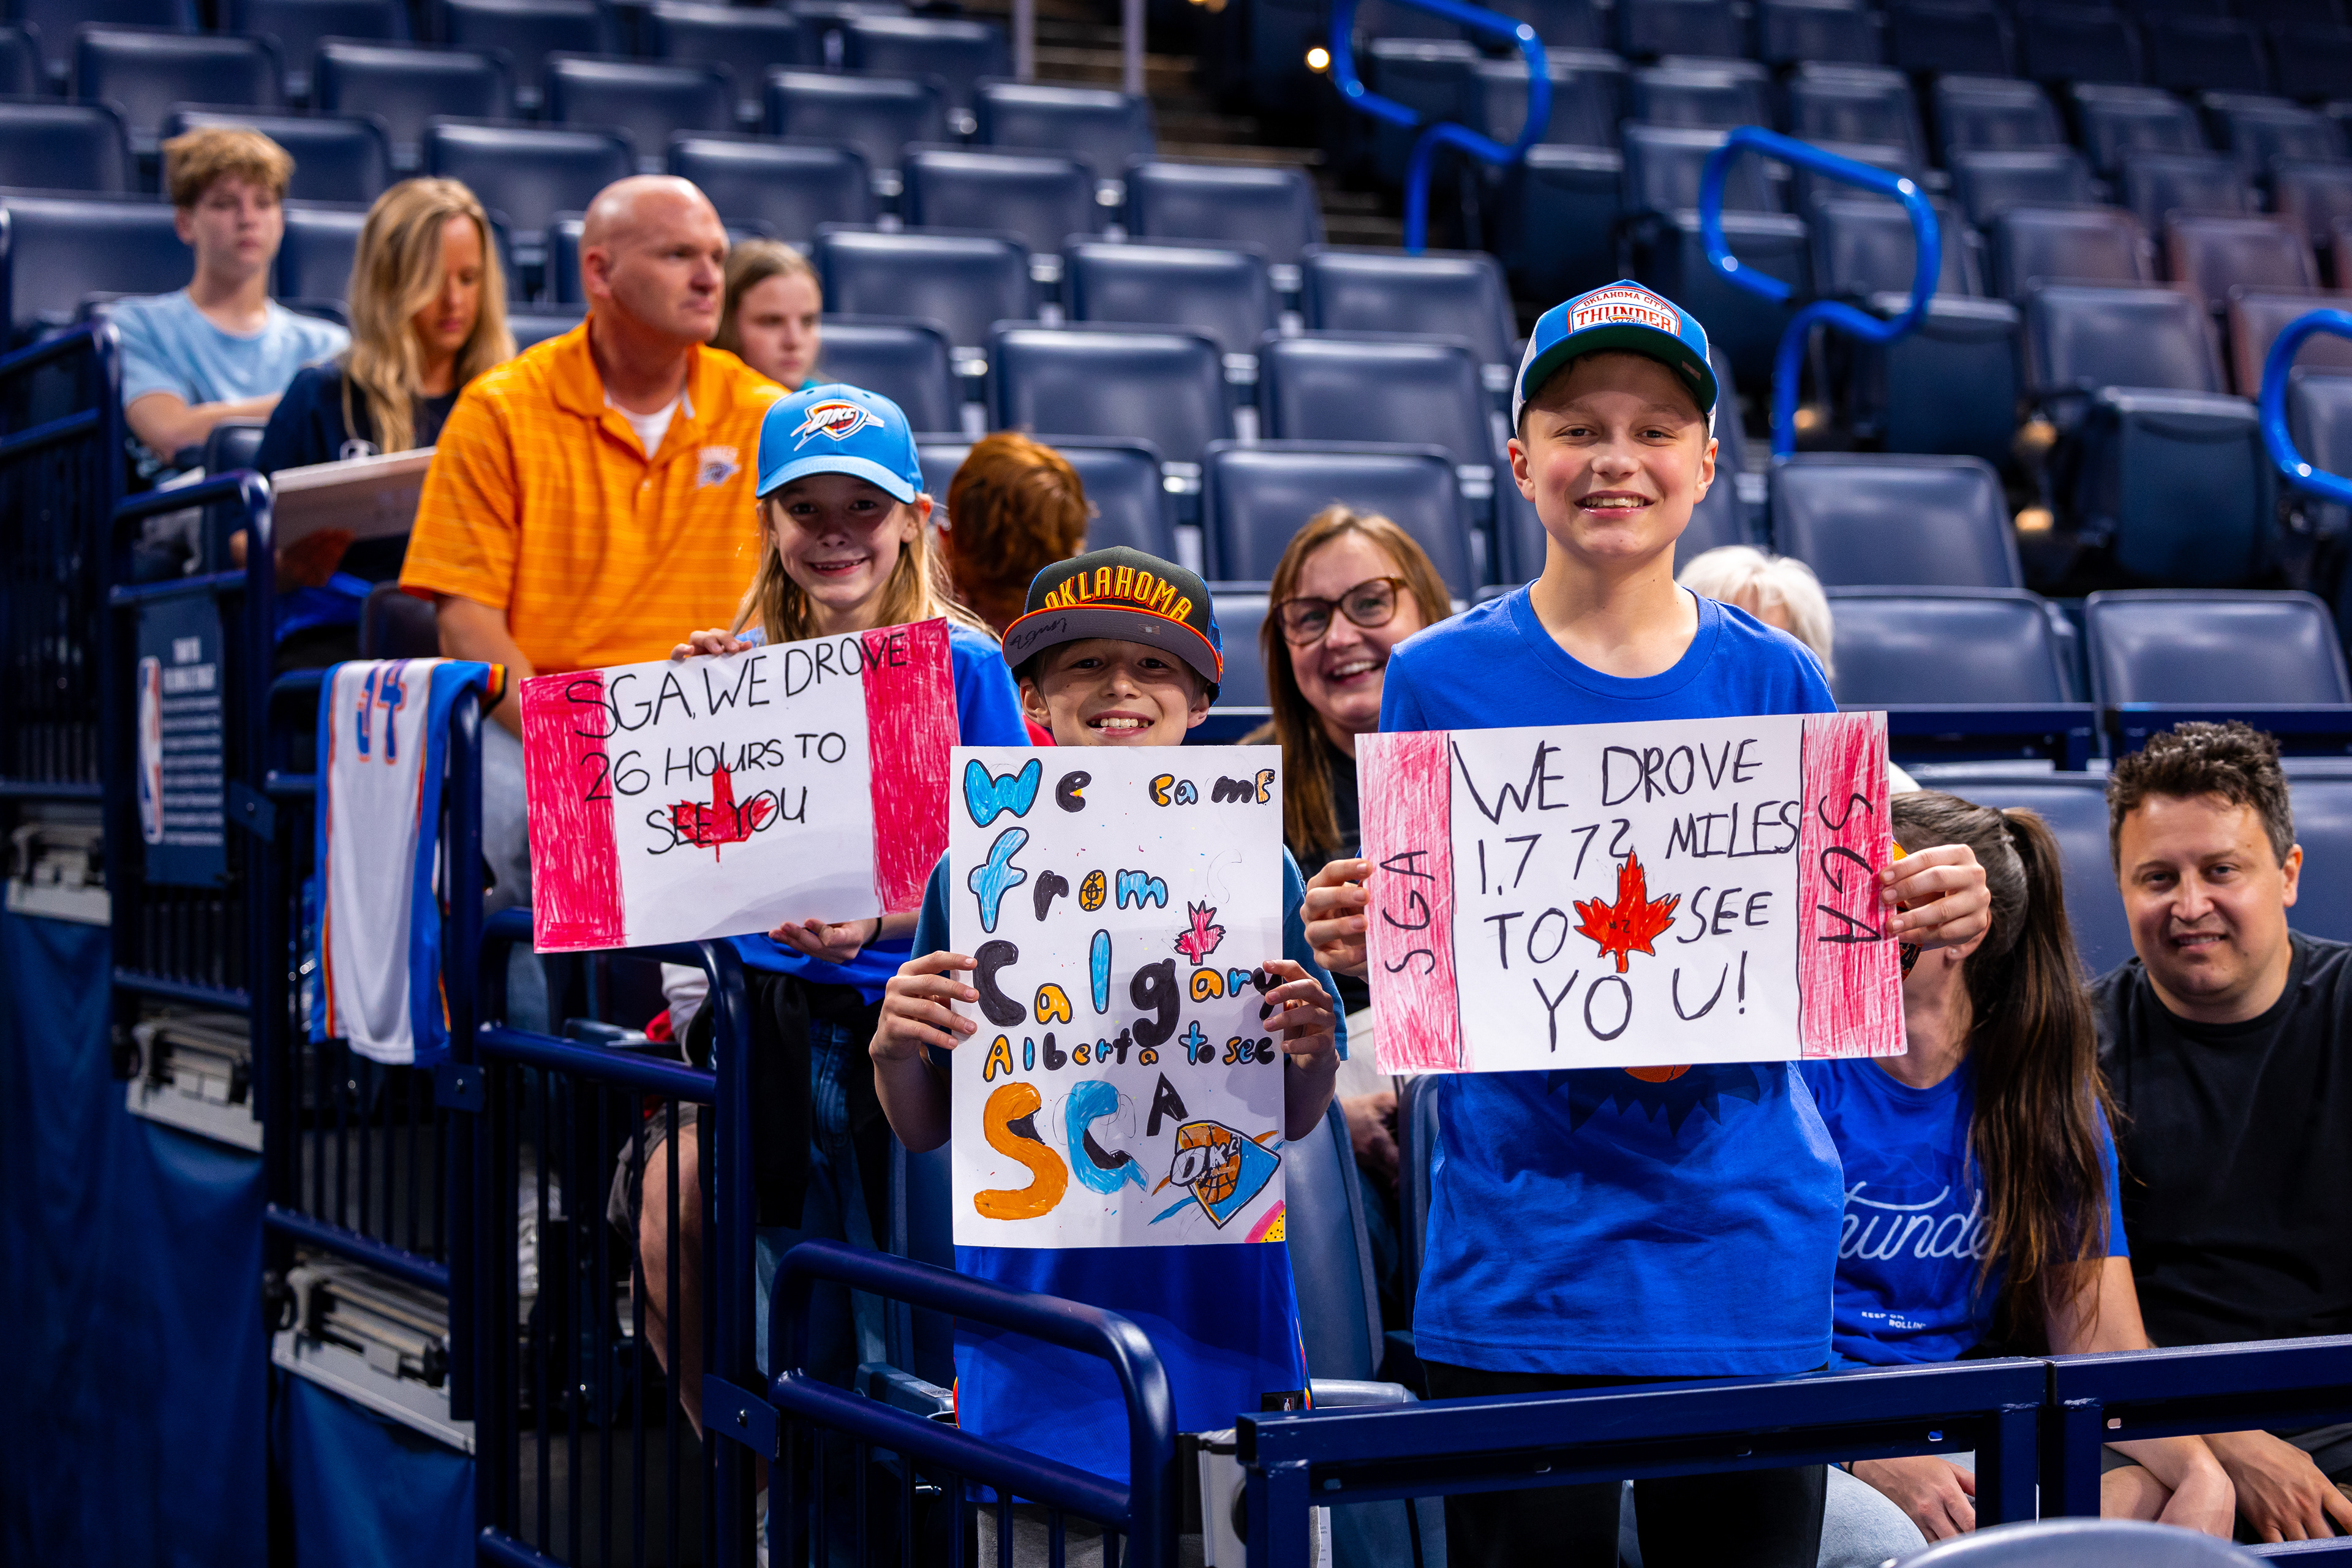 SGA, WE DROVE
26 HOURS TO
SEE YOU
We came
from
Calgary
Alberta to see
SGA
OKC
WE DROVE
1.772 MILES
TO SEE
YOU!
SGA
SGA
OKC
OKLAHOMA
OKLAHOMA CITY
THUNDER
34
KEEP ON
ROLLIN'